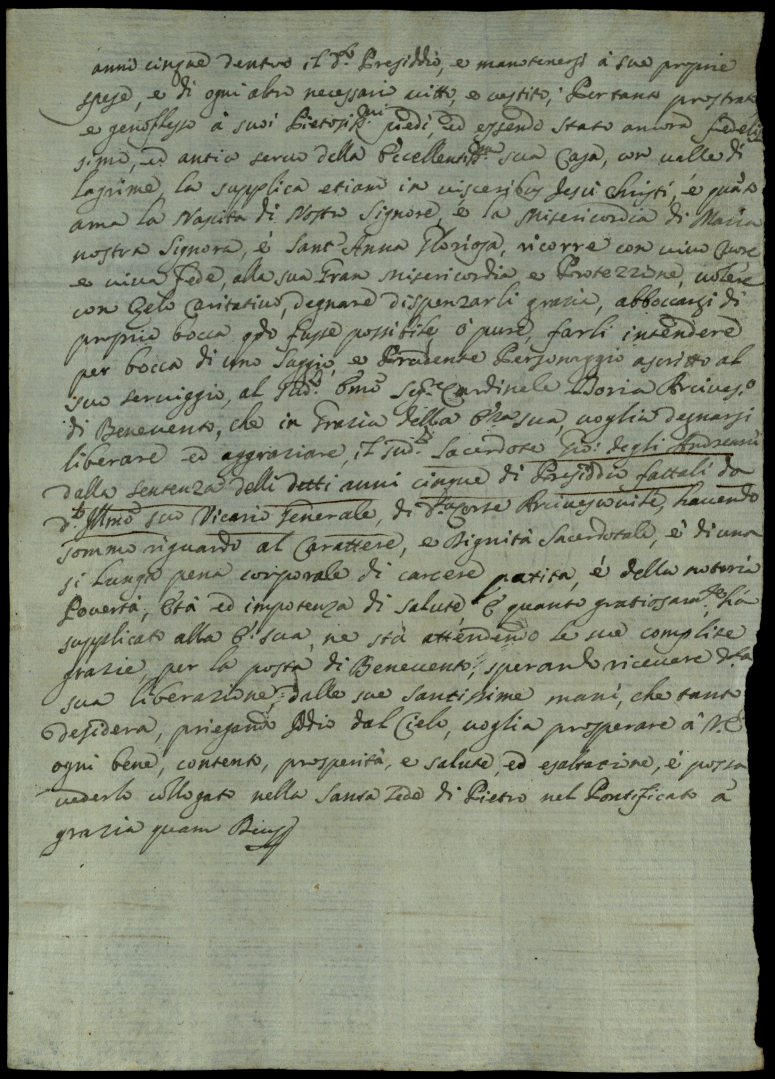 anni cinque dentro il d.º Presiddio, e manotenersi à sue proprie
spese, e di ogni altro necessario vitto, e vestito; Pertanto prostrato
e genoflesso à suoi Pietosiss.mi piedi, ed essendo stato ancora fedelis
simo, ed antico servo della Eccellentiss.ma sua Casa, con valle di
lagrime, la supplica etiam in visceribus Jesu Christi, è quãto
ama la Nascita di Nostro Signore, è la Misericordia di Maria
nostra Signora, è Sant'Anna Gloriosa, ricorre con vivo Cuore
e viva fede, alla sua Gran Misericordia e Protezzione, volere
con Zelo Caritativo, degnare dispenzarli grazia, abboccarsi di
propria bocca q̃do fusse possibile, ò pure, farli intendere
per bocca di uno Saggio, e Prudente Personaggio ascritto al
suo serviggio, al sud.º Emo Sig.re Cardinale Doria Arcives.º
di Benevento, che in Grazia della E̅za sua, voglia degnarsi
liberare ed aggraziare, il sud.º Sacerdote Gio: degli Andreani
dalla sentenza delli detti anni cinque di Presiddio fattali da
d.º Illmo suo Vicario Generale, di d.ª Corte Arcivescovile, havendo
sommo riguardo al Carattere, e Dignità Sacerdotale, è di una
si lunga pena corporale di carcere patita, è della notoria
Povertà, Età ed impotenza di salute, E quanto gratiosam.te hà
supplicato alla E. sua, ne stà attendendo le sue complite
grazie, per la posta di Benevento, sperando ricevere d.ª
sua liberazione, dalle sue santissime mani, che tanto
desidera, priegando Iddio dal Cielo, voglia prosperare à V.E.
ogni bene, contento, prosperità, e salute, ed esaltazione, è possa
vederlo collogato nella Santa Sede di Pietro nel Pontificato à
grazia quam Deus